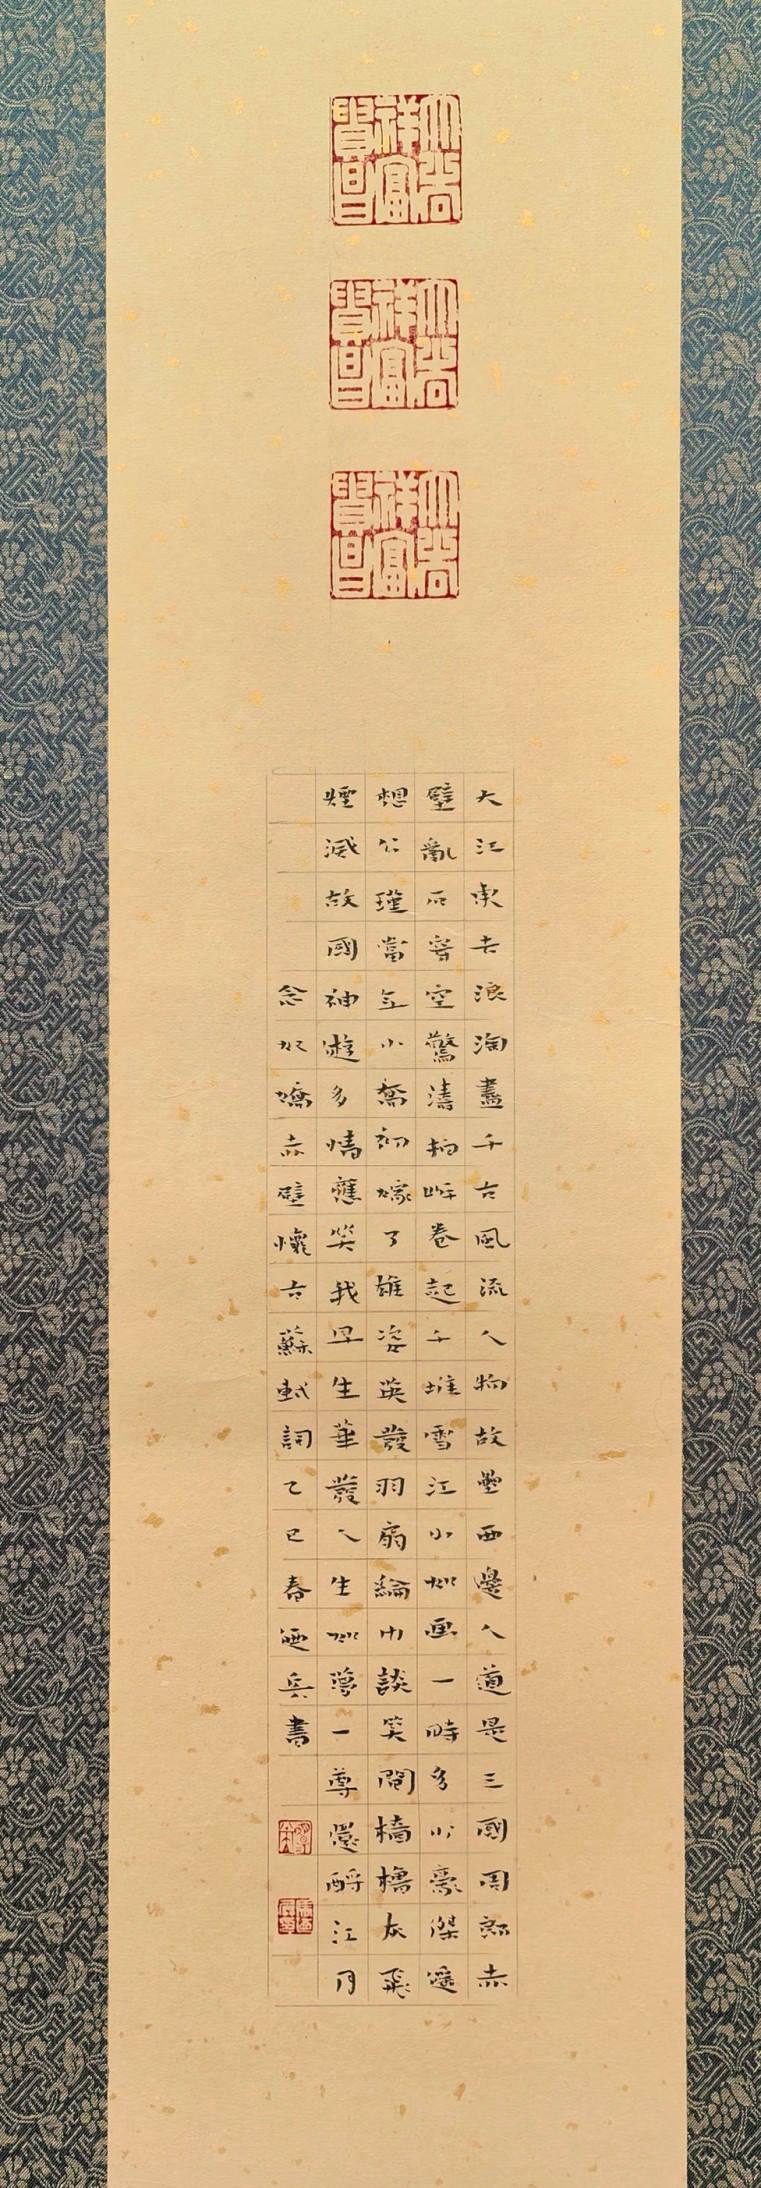 大尚祥富貴昌
大尚祥富貴昌
大尚祥富貴昌
大江東去浪淘盡千古風流人物故壘西邊人道是三國周郎赤
壁亂石穿空驚濤拍岸卷起千堆雪江山如画一時多少豪傑遙
想公瑾當年小喬初嫁了雄姿英發羽扇綸巾談笑間檣櫓灰飛
煙滅故國神遊多情應笑我早生華發人生如夢一尊還酹江月
念奴嬌赤壁懷古蘇軾詞乙巳春迺兵書